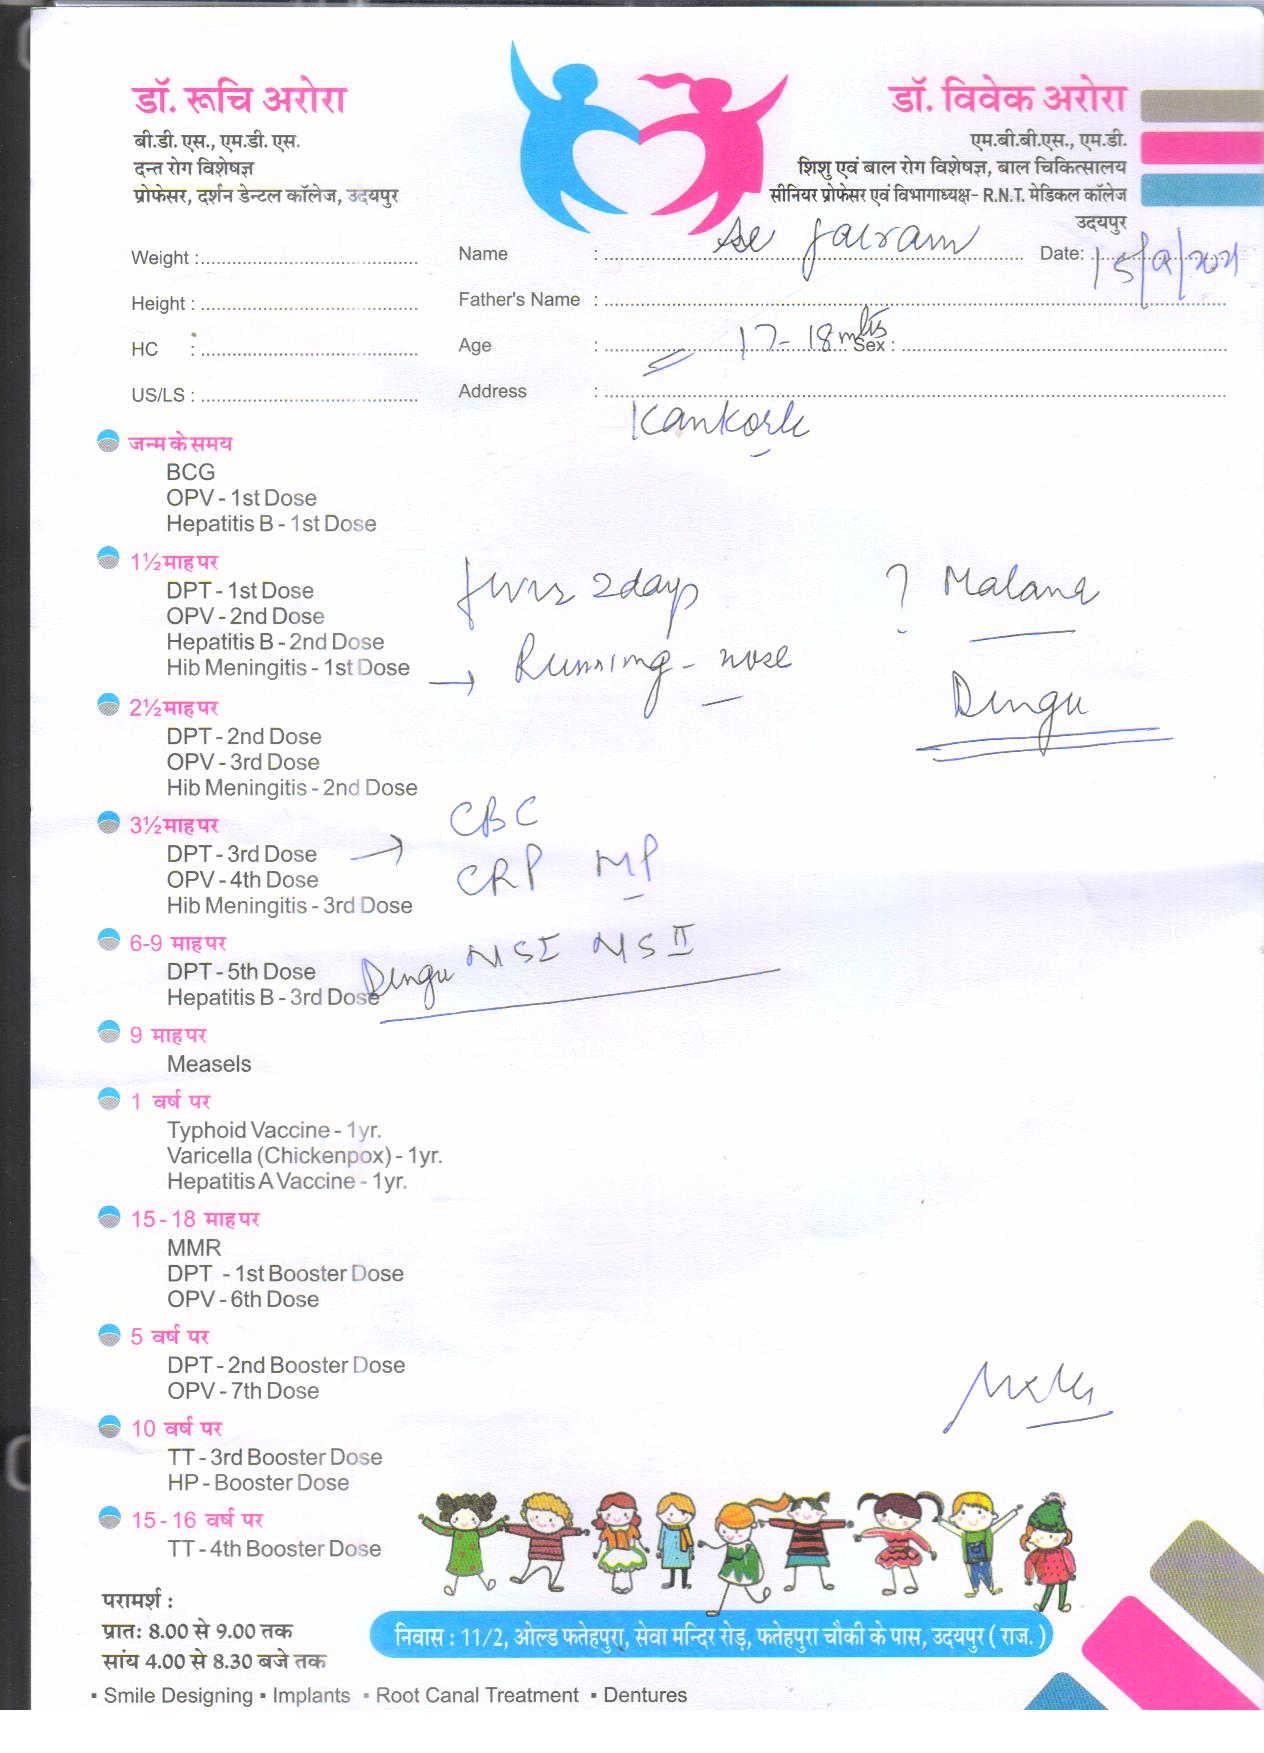 डॉ. रूचि अरोरा
बी.डी. एस., एम.डी. एस.
दन्त रोग विशेषज्ञ
प्रोफेसर, दर्शन डेन्टल कॉलेज, उदयपुर
डॉ. विवेक अरोरा
एम.बी.बी.एस., एम.डी.
शिशु एवं बाल रोग विशेषज्ञ, बाल चिकित्सालय
सीनियर प्रोफेसर एवं विभागाध्यक्ष- R.N.T. मेडिकल कॉलेज
उदयपुर
Weight : Name : Jairam Date: 15/9/2021
Height : Father's Name :
HC : Age : 17-18 mths Sex :
US/LS : Address :
जन्म के समय
BCG
OPV - 1st Dose
Hepatitis B - 1st Dose
1½ माह पर
DPT - 1st Dose
OPV - 2nd Dose
Hepatitis B - 2nd Dose
Hib Meningitis - 1st Dose
2½ माह पर
DPT - 2nd Dose
OPV - 3rd Dose
Hib Meningitis - 2nd Dose
3½ माह पर
DPT - 3rd Dose
OPV - 4th Dose
Hib Meningitis - 3rd Dose
6-9 माह पर
DPT - 5th Dose
Hepatitis B - 3rd Dose
9 माह पर
Measels
1 वर्ष पर
Typhoid Vaccine - 1yr.
Varicella (Chickenpox) - 1yr.
Hepatitis A Vaccine - 1yr.
15 - 18 माह पर
MMR
DPT - 1st Booster Dose
OPV - 6th Dose
5 वर्ष पर
DPT - 2nd Booster Dose
OPV - 7th Dose
10 वर्ष पर
TT - 3rd Booster Dose
HP - Booster Dose
15 - 16 वर्ष पर
TT - 4th Booster Dose
2 days
→ Running - nose
? Malaria
Dengu
→ CBC
CRP MP
Dengu NSI NS II
परामर्श :
प्रातः 8.00 से 9.00 तक
सांय 4.00 से 8.30 बजे तक
निवास : 11/2, ओल्ड फतेहपुरा, सेवा मन्दिर रोड़, फतेहपुरा चौकी के पास, उदयपुर ( राज. )
▪ Smile Designing ▪ Implants ▪ Root Canal Treatment ▪ Dentures